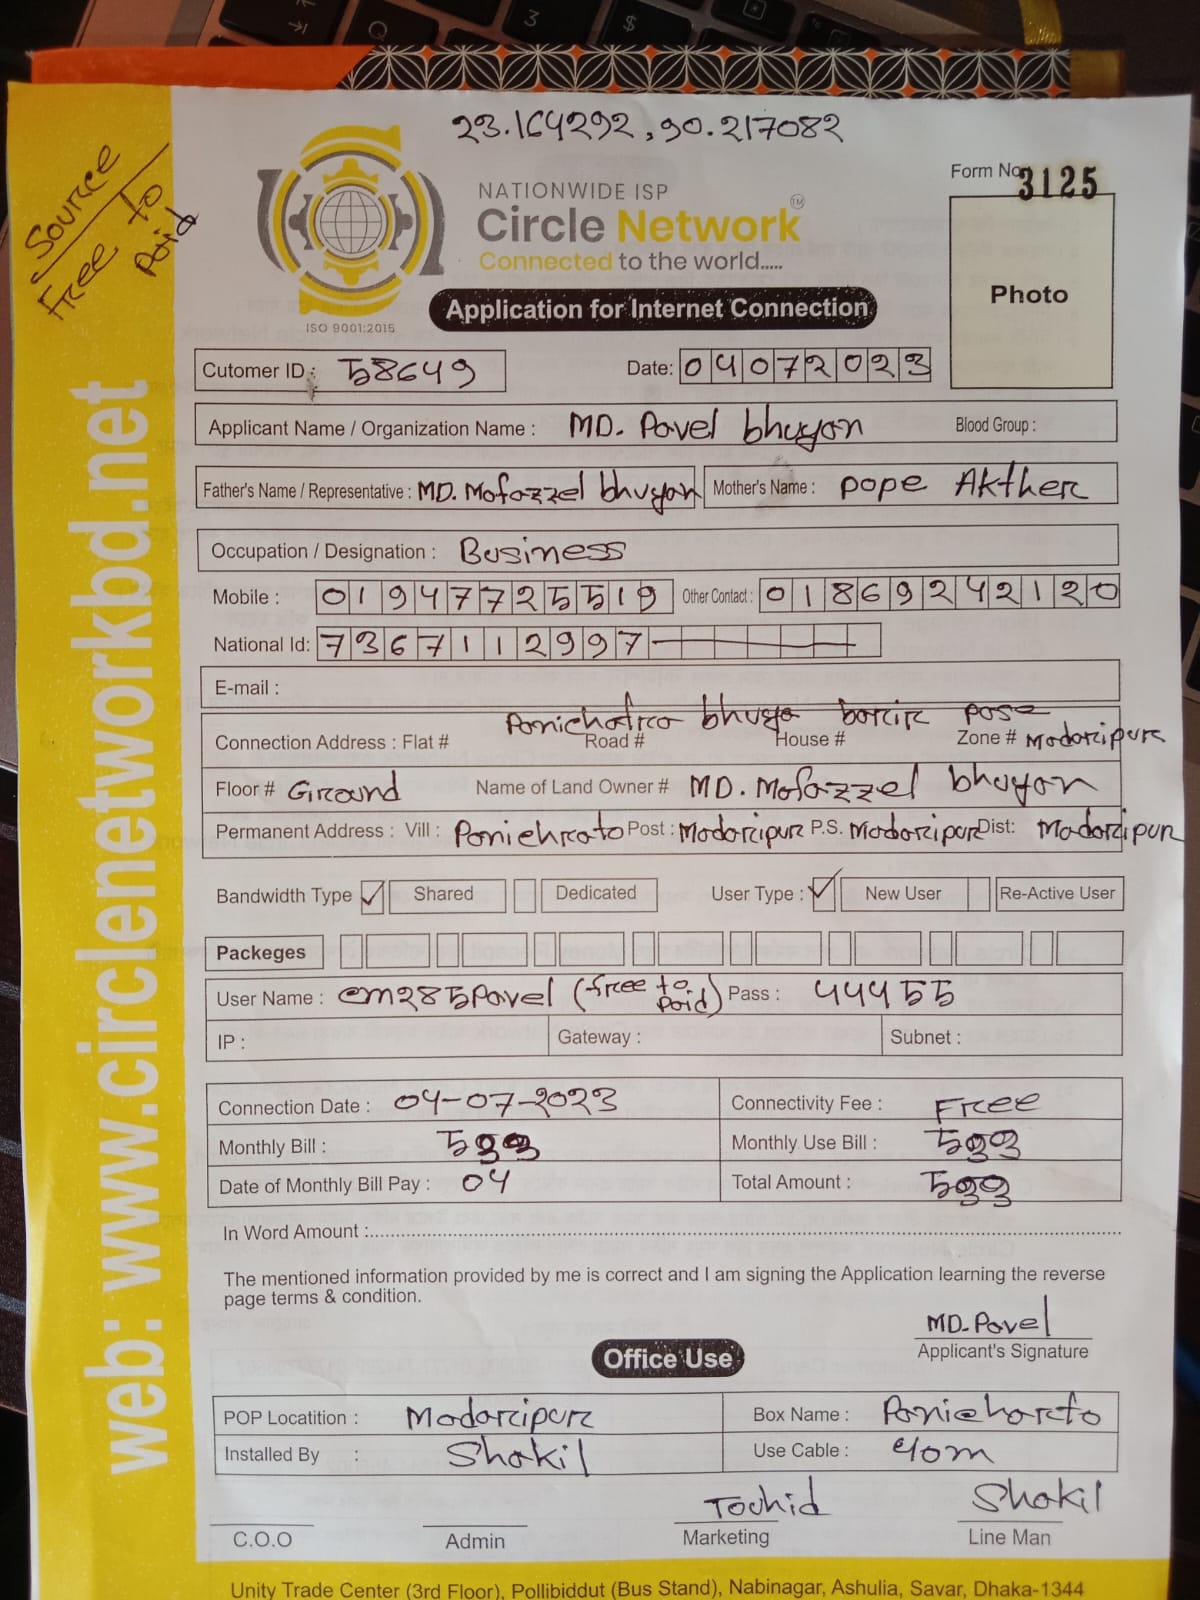 23.164292, 90.217082
Source
Free to
paid
NATIONWIDE ISP
Form No. 3125
Circle Network TM
Connected to the world.....
Photo
ISO 9001:2015
Application for Internet Connection
Cutomer ID : 58649 Date: 04072023
Applicant Name / Organization Name : MD. Pavel bhuyan Blood Group :
Father's Name / Representative : MD. Mofazzel bhuyan Mother's Name : Pope Akther
Occupation / Designation : Business
Mobile : 01947725519 Other Contact : 01869242120
National Id: 7367112997
E-mail :
bhuya barir pase
Connection Address : Flat # Road # House # Zone # Madaripur
Floor # Ground Name of Land Owner # MD. Mofazzel bhuyan
Permanent Address : Vill : Panichrato Post : Madaripur P.S. Madaripur Dist: Madaripur
Bandwidth Type ✓ Shared Dedicated User Type : ✓ New User Re-Active User
Packeges
User Name : cm285Pavel (free to paid) Pass : 44455
IP : Gateway : Subnet :
Connection Date : 04-07-2023 Connectivity Fee : Free
Monthly Bill : 599 Monthly Use Bill : 599
Date of Monthly Bill Pay : 04 Total Amount : 599
In Word Amount :
The mentioned information provided by me is correct and I am signing the Application learning the reverse
page terms & condition.
MD. Pavel
Applicant's Signature
Office Use
POP Locatition : Madaripur Box Name : Panicharto
Installed By : Shakil Use Cable : 40m
Touhid Shakil
C.O.O Admin Marketing Line Man
Unity Trade Center (3rd Floor), Pollibiddut (Bus Stand), Nabinagar, Ashulia, Savar, Dhaka-1344
web: www.circlenetworkbd.net